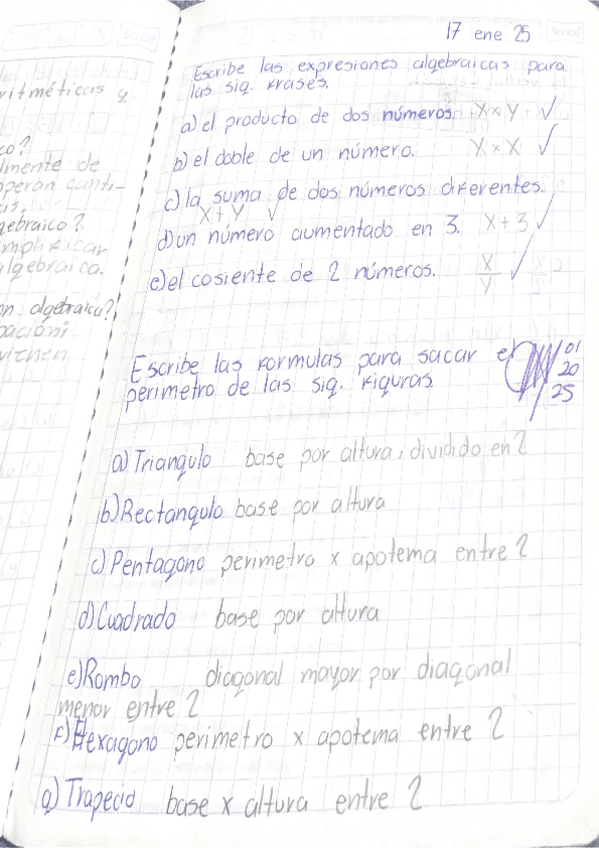 17 ene 25
Escribe las expresiones algebraicas para
las sig. frases.
a) el producto de dos números. X x y ✓
b) el doble de un número. X x X ✓
c) la suma de dos números diferentes.
X + Y ✓
d) un número aumentado en 3. X + 3 ✓
e) el cosiente de 2 números. X/Y ✓
Escribe las formulas para sacar el
perimetro de las sig. figuras.
01
20
25
a) Triangulo base por altura, dividido en 2
b) Rectangulo base por altura
c) Pentagono perimetro x apotema entre 2
d) Cuadrado base por altura
e) Rombo diagonal mayor por diagonal
menor entre 2
F) Hexagono perimetro x apotema entre 2
g) Trapecio base x altura entre 2
ritméticas y
co?
lmente de
operan canti-
as.
gebraico?
implificar
algebraica.
on algebraica?
vienen